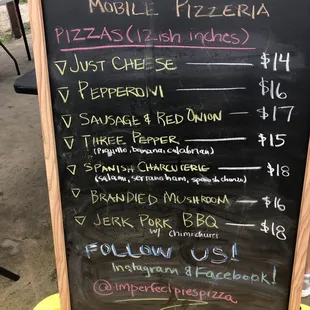 MOBILE PIZZERIA
PIZZAS (12ish inches)
JUST CHEESE — $14
PEPPERONI — $16
SAUSAGE & RED ONION — $17
THREE PEPPER — $15
banana, calabrian)
SPANISH CHARCUTERIE — $18
(salami, serrano ham, spanish chorizo)
BRANDIED MUSHROOM — $16
JERK PORK BBQ — $18
w/ chimichurri
FOLLOW US!
Instagram & Facebook!
@imperfectpiespizza